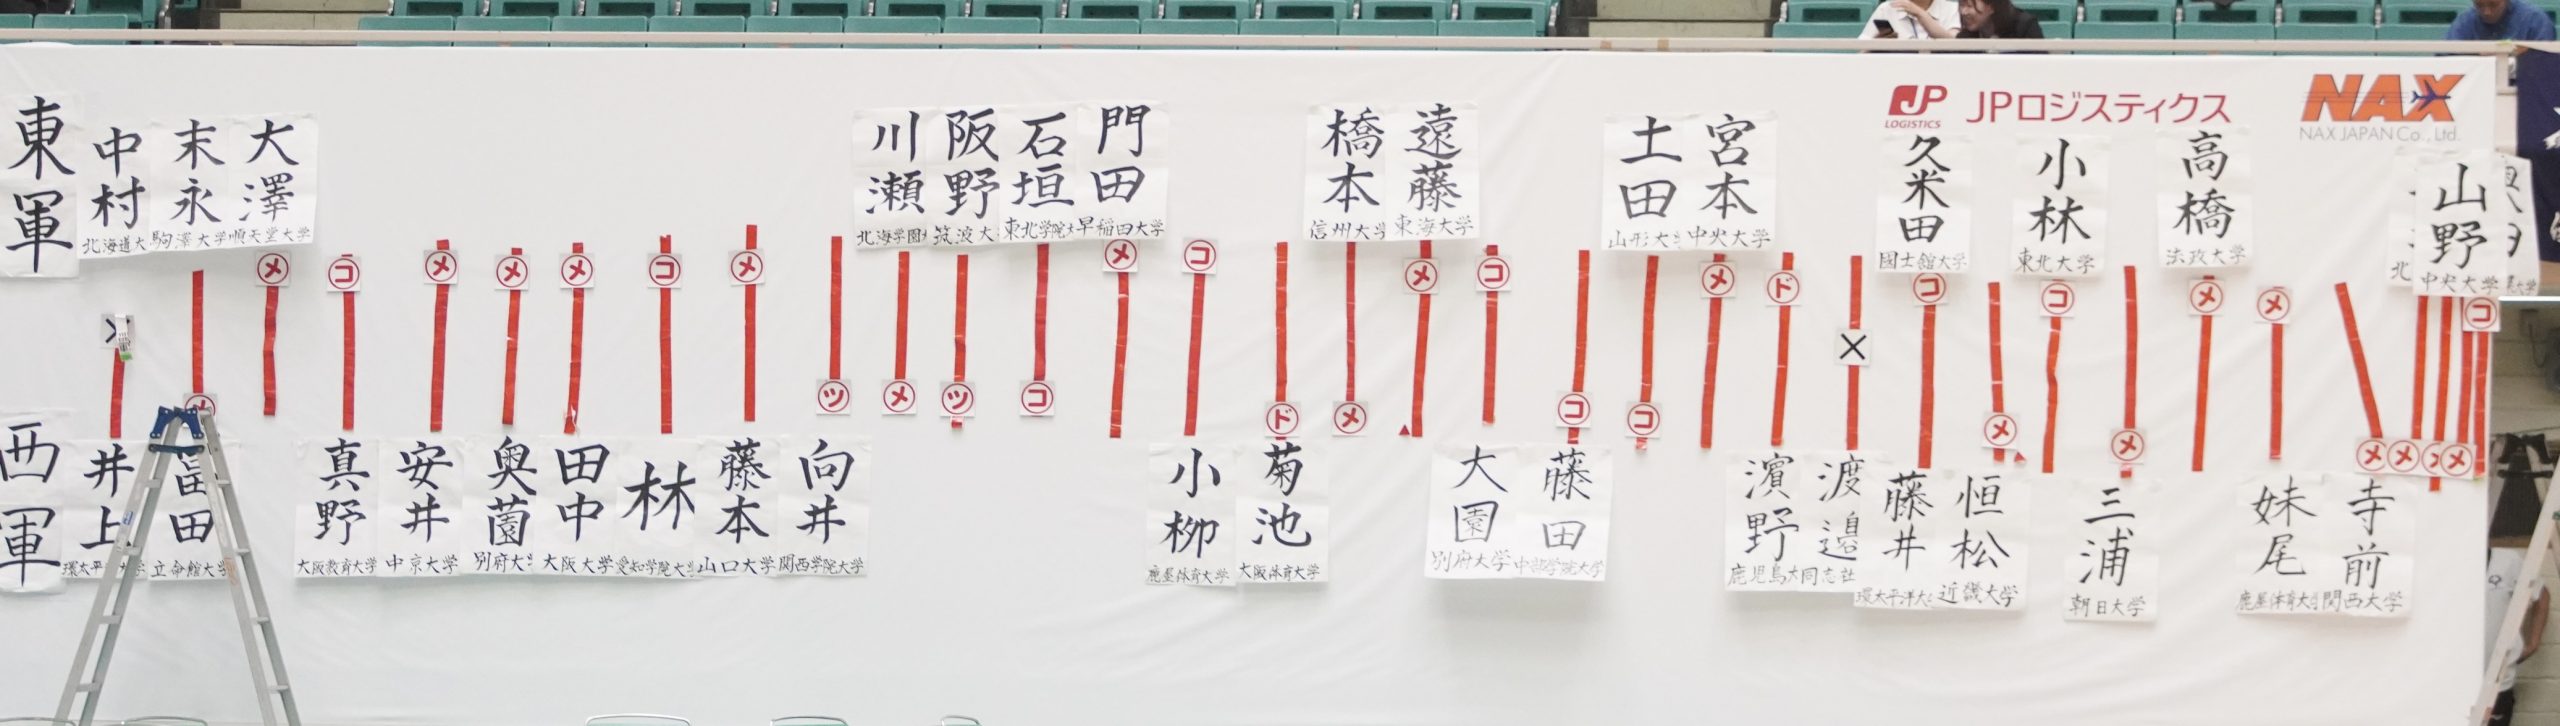 東軍
中村
北海道大
末永
駒澤大学
大澤
順天堂大学
川瀬
北海学園
阪野
筑波大
石垣
東北学院大
門田
早稲田大学
橋本
信州大学
遠藤
東海大学
土田
山形大学
宮本
中央大学
久米田
國士舘大学
小林
東北大学
高橋
法政大学
山野
中央大学
JP
LOGISTICS
JPロジスティクス
NAX
NAX JAPAN Co., Ltd.
メ
コ
メ
メ
メ
コ
メ
メ
コ
メ
コ
メ
ド
コ
コ
メ
メ
コ
×
ツ
メ
ツ
コ
ド
メ
コ
コ
メ
メ
メ
メ
メ
西軍
井上
環太平
富田
立命館大学
真野
大阪教育大学
安井
中京大学
奥薗
別府大学
田中
大阪大学
林
愛知学院大学
藤本
山口大学
向井
関西学院大学
小柳
鹿屋体育大学
菊池
大阪体育大学
大園
別府大学
藤田
中部学院大学
濱野
鹿児島大
渡邉
同志社
藤井
環太平洋大
恒松
近畿大学
三浦
朝日大学
妹尾
鹿屋体育大学
寺前
関西大学